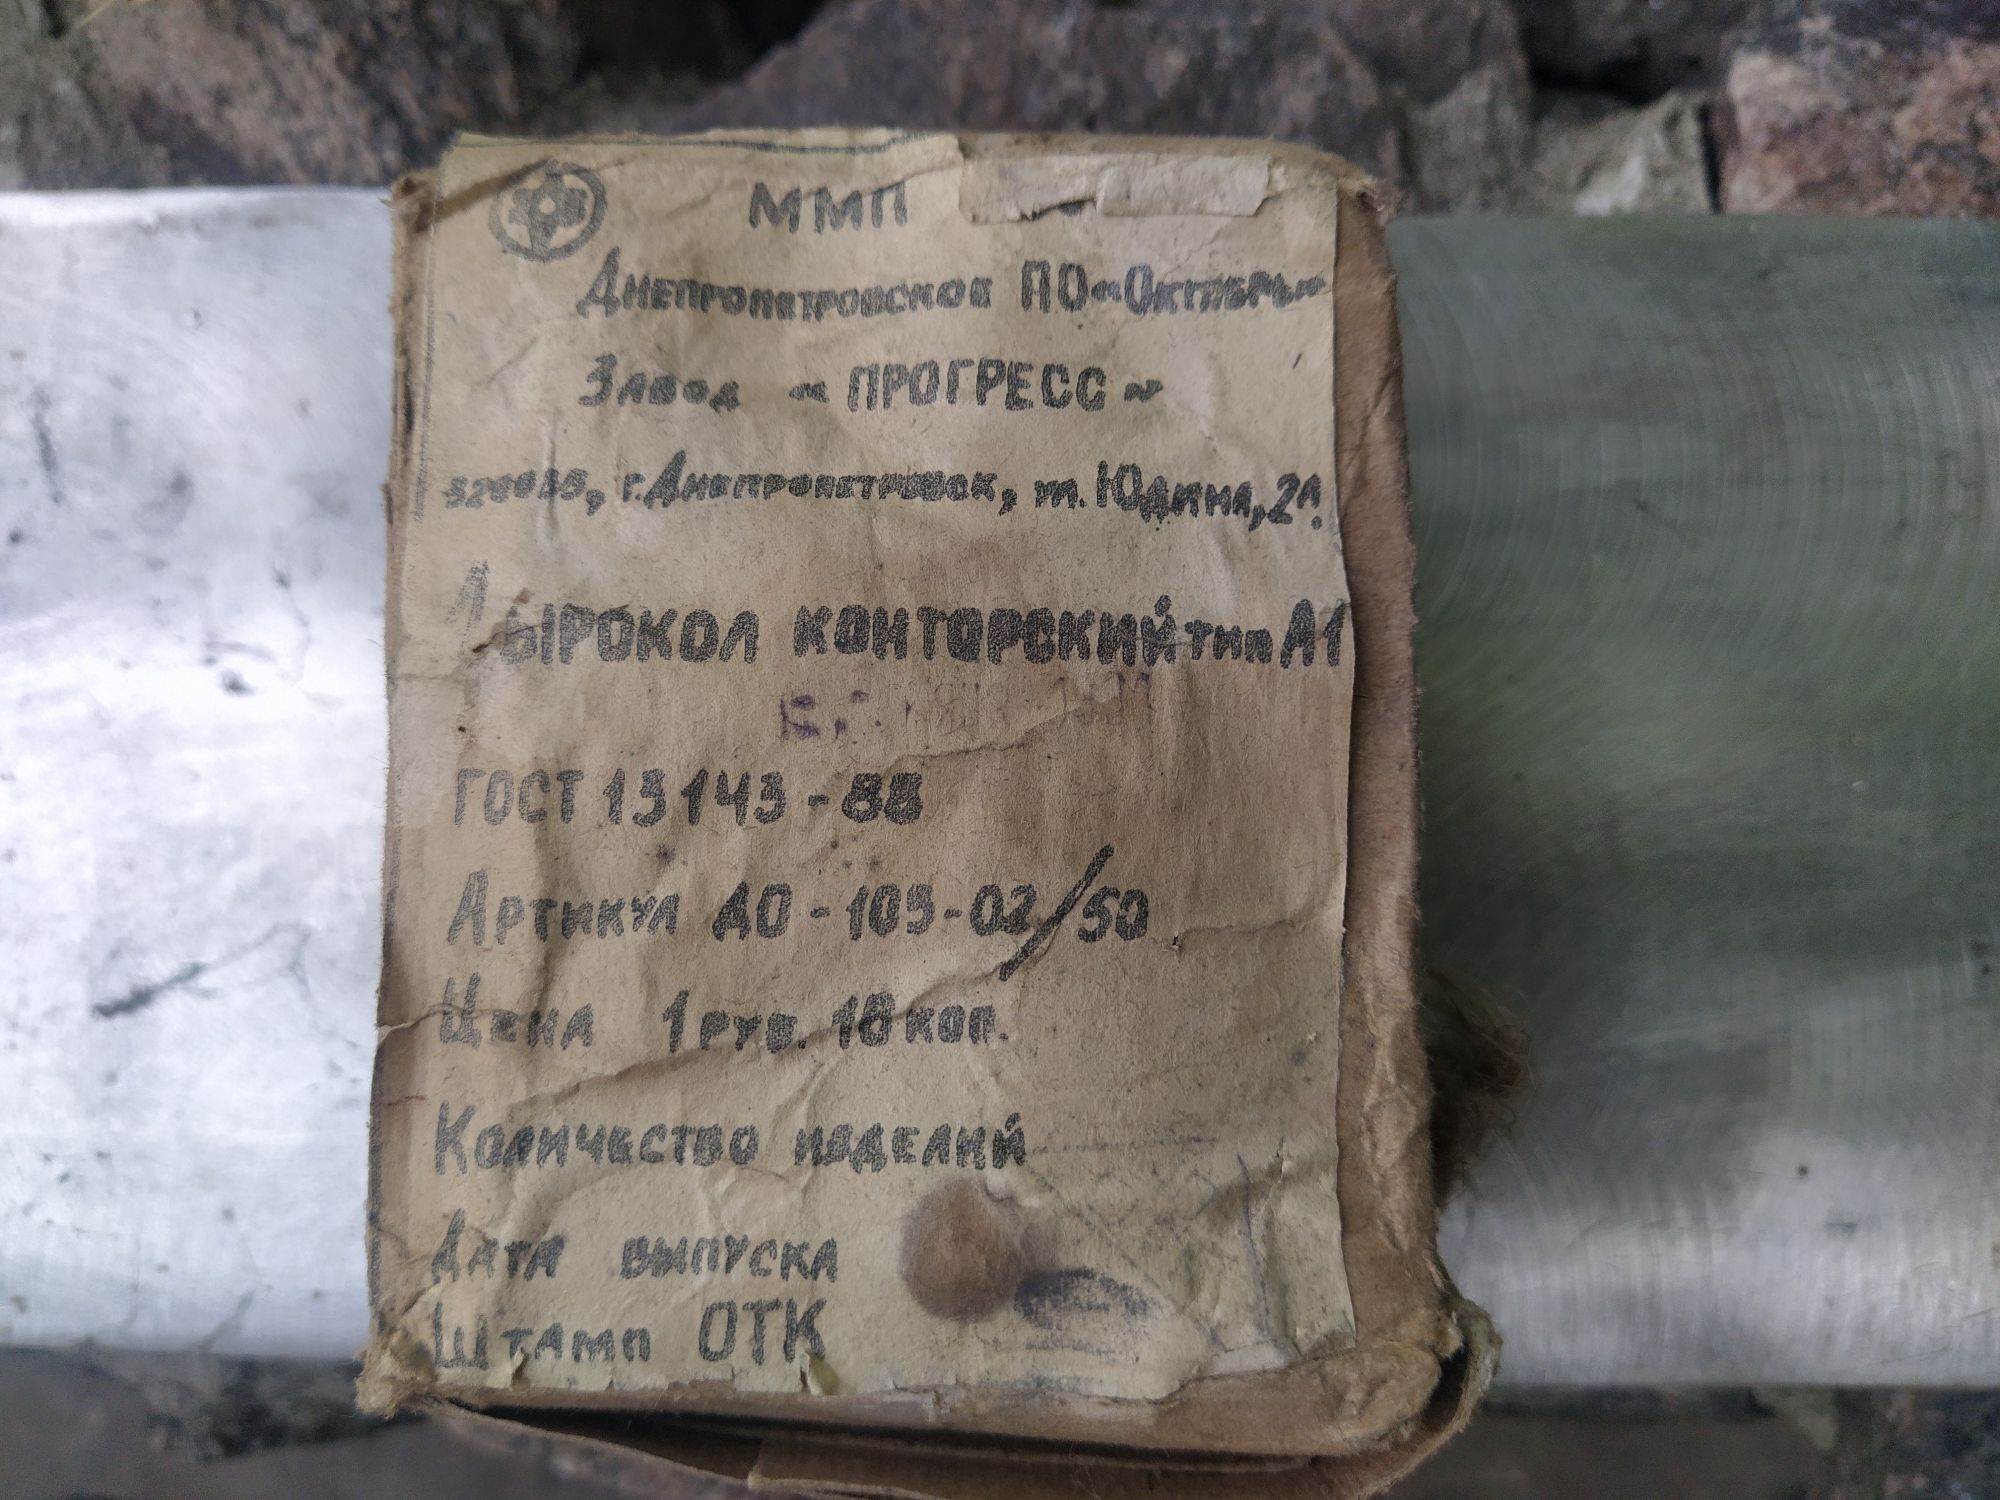 ММП
Днепропетровское ПО «Октябрь»
Завод «ПРОГРЕСС»
г. Днепропетровск, ул. Юдина, 2А.
ДЫРОКОЛ КОНТОРСКИЙ тип А1
ГОСТ 13143-88
Артикул ДО-103-02/50
Цена 1 руб. 18 коп.
Количество изделий
Дата выпуска
Штамп ОТК